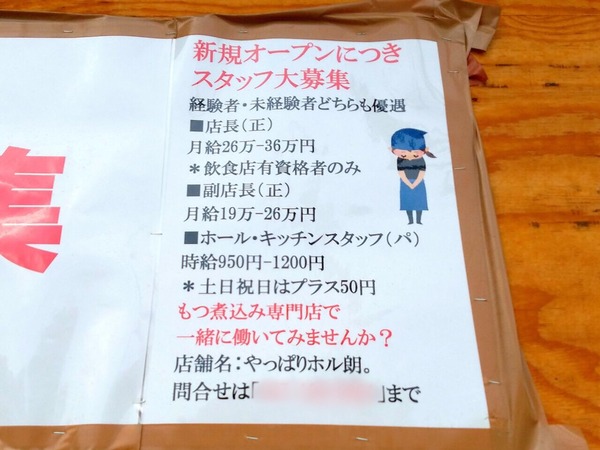 集
新規オープンにつき
スタッフ大募集
経験者・未経験者どちらも優遇
■店長(正)
月給26万-36万円
*飲食店有資格者のみ
■副店長(正)
月給19万-26万円
■ホール・キッチンスタッフ(パ)
時給950円-1200円
*土日祝日はプラス50円
もつ煮込み専門店で
一緒に働いてみませんか?
店舗名:やっぱりホル朗。
問合せは「 」まで